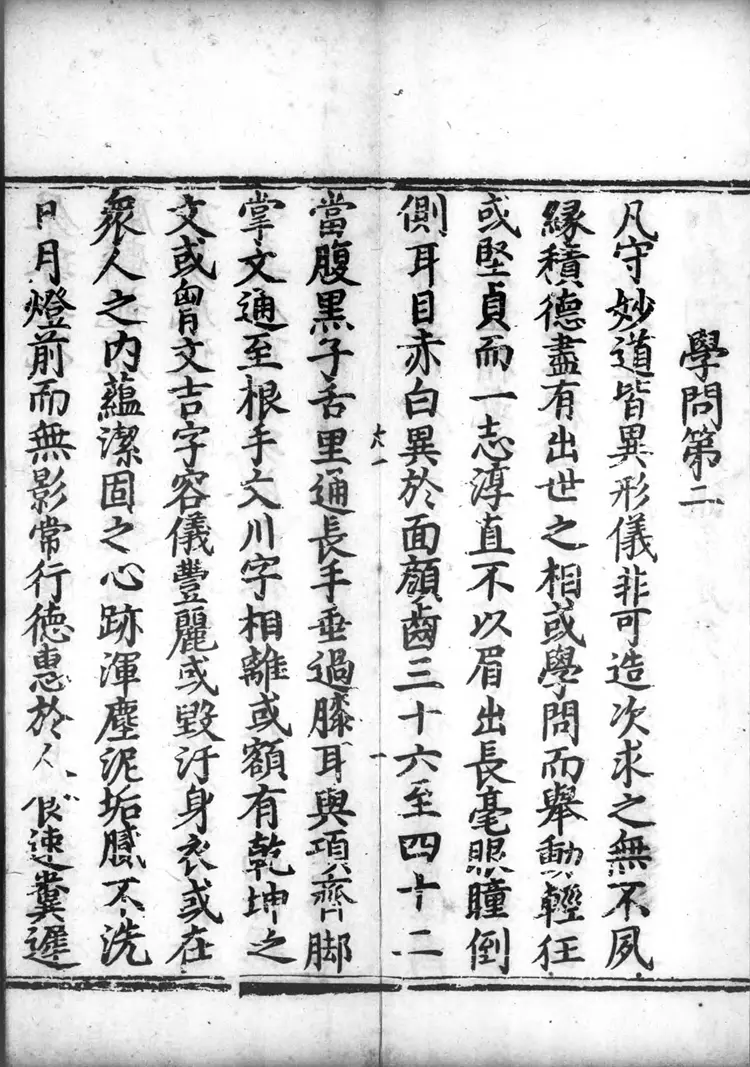 學問第二
凡守妙道皆異形儀非可造次求之無不夙
緣積德盡有出世之相或學問而舉動輕狂
或堅貞而一志淳直不以眉出長毫眼瞳倒
側耳目赤白異於面顏齒三十六至四十二
六一
當腹黑子舌里通長手垂過膝耳與項齊脚
掌文通至根手文川字相離或額有乾坤之
文或胷文吉字容儀豐麗或毀汙身衣或在
衆人之内藴潔固之心跡渾塵泥垢膩不洗
日月燈前而無影常行德惠於人 速糞遲